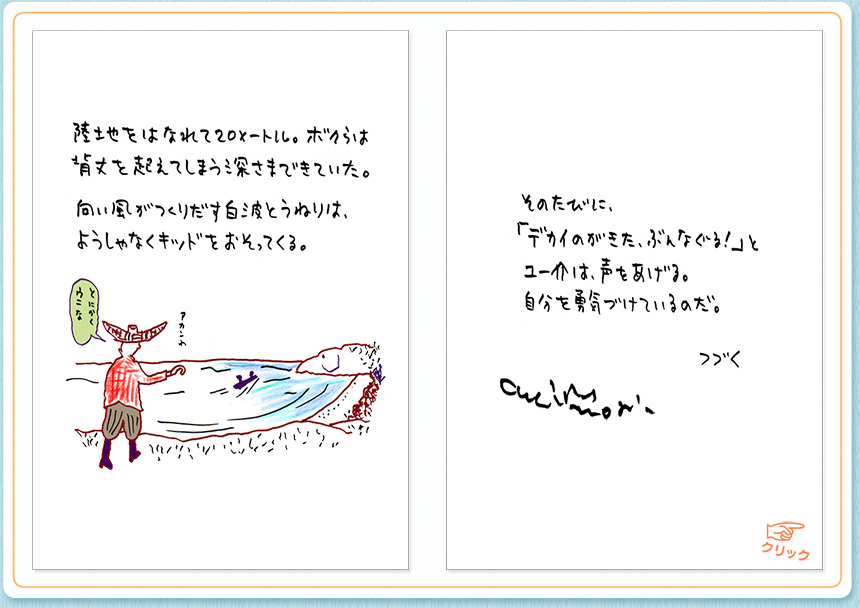 陸土地をはなれて20メートル。ボクらは
背丈を起えてしまう深さまできていた。
向い風がつくりだす白波とうねりは、
ようしゃなくキッドをおそってくる。
とにかく
アカンぺ
そのたびに、
「デカイのがきた、ぶんなぐる!」と
ユー介は、声をあげる。
自分を勇気づけているのだ。
つづく
クリック